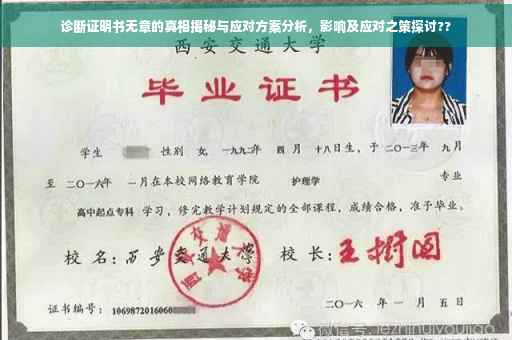 诊断证明书无章的真相揭秘与应对方案分析，影响及应对之策探讨??
西安交通大学
毕业证书
学生 性别 女，一九九二年 四月 十八日生，于 二〇一三年 九月
至 二〇一六年 一月在本校网络教育学院 护理学 专业
高中起点专科 学习，修完教学计划规定的全部课程，成绩合格，准予毕业。
校 名：西安交通大学 校 长：王树国
西安交通大学
证书编号：1069872016060
二〇一六 年 一 月 五 日
微信号: jezhinuiyoujiao